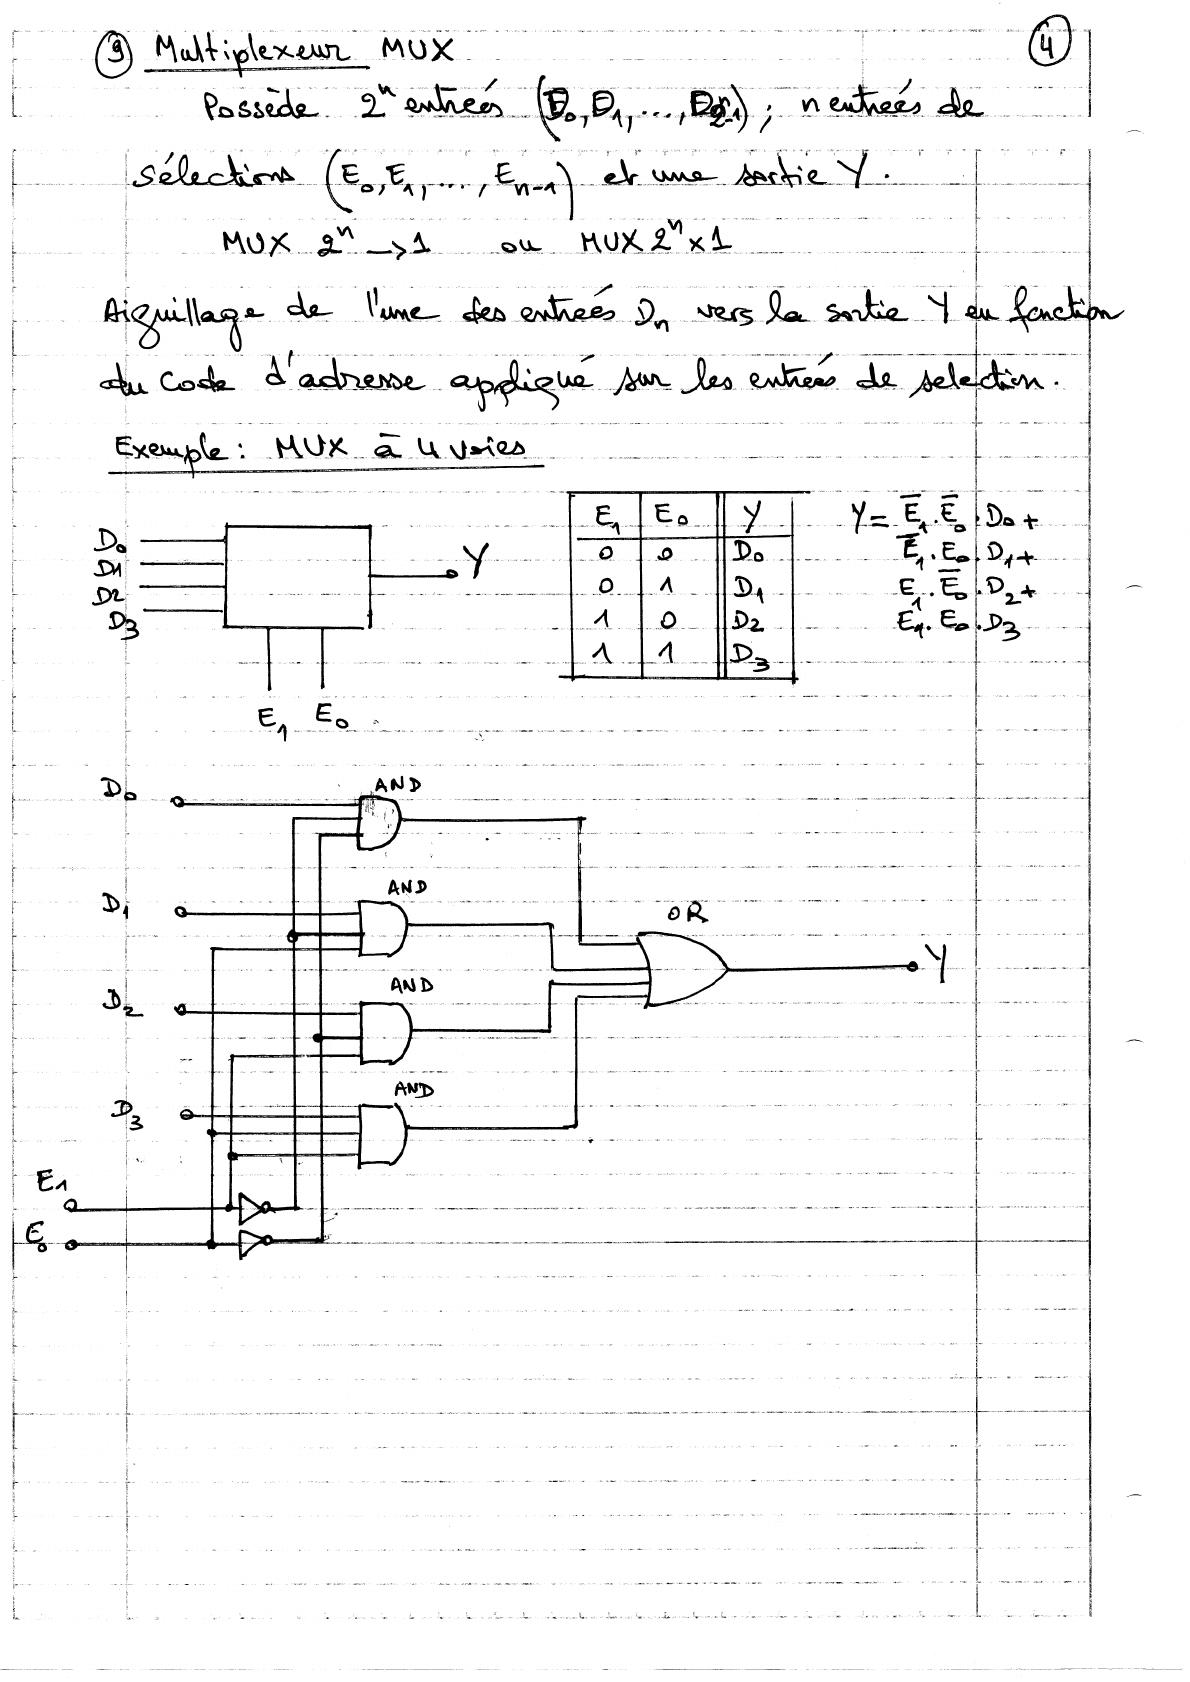 ③ Multiplexeur MUX ④
Possède 2ⁿ entrées (D₀, D₁, ..., D₂ⁿ₋₁) ; n entrées de
sélections (E₀, E₁, ..., Eₙ₋₁) et une sortie Y.
MUX 2ⁿ → 1 ou MUX 2ⁿ x 1
Aiguillage de l'une des entrées Dₙ vers la sortie Y en fonction
du Code d'adresse appliqué sur les entrées de selection.
Exemple : MUX à 4 voies
D₀
D1
D2
D₃
Y
E₁ E₀
E₁ E₀ Y
0 0 D₀
0 1 D₁
1 0 D₂
1 1 D₃
Y = E̅₁.E̅₀.D₀ +
E̅₁.E₀.D₁ +
E₁.E̅₀.D₂ +
E₁.E₀.D₃
D₀ AND
D₁ AND
OR
Y
D₂ AND
D₃ AND
E₁
E₀